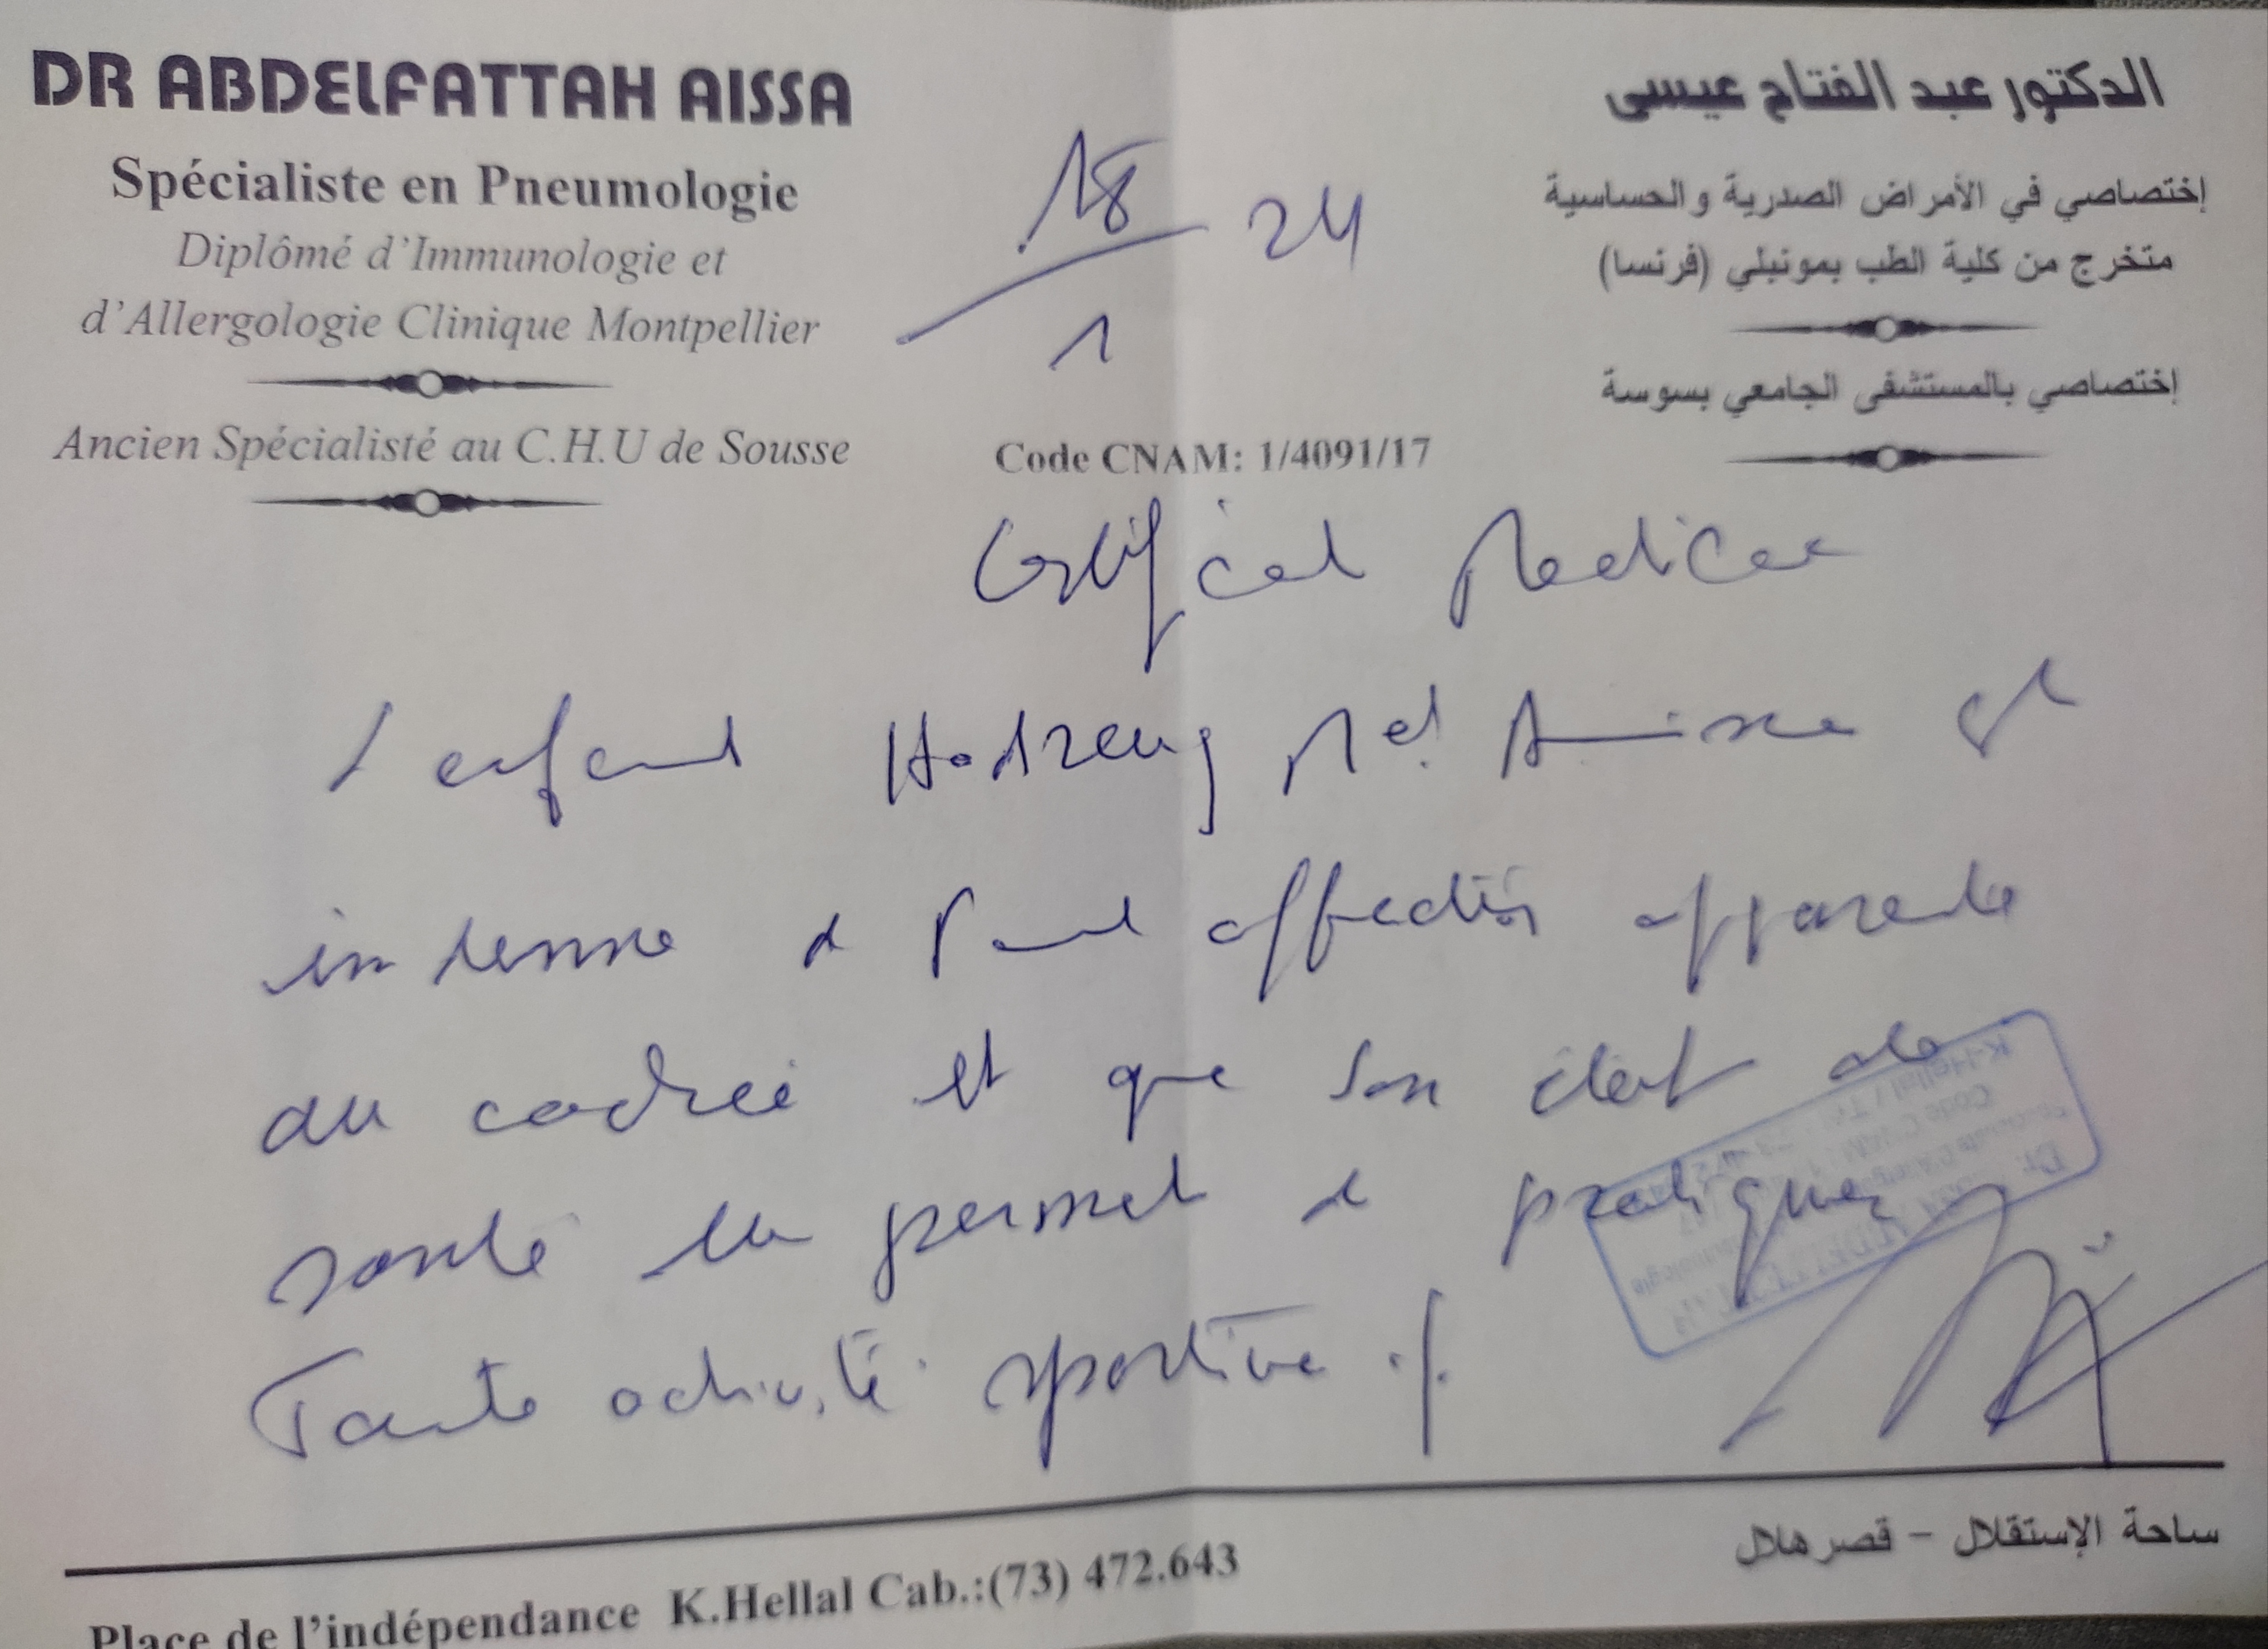 DR ABDELFATTAH AISSA
Spécialiste en Pneumologie
Diplômé d'Immunologie et
d'Allergologie Clinique Montpellier
Ancien Spécialisté au C.H.U de Sousse
الدكتور عبد الفتاح عيسى
إختصاصي في الأمراض الصدرية والحساسية
متخرج من كلية الطب بمونبلي (فرنسا)
إختصاصي بالمستشفى الجامعي بسوسة
18/1 24
Code CNAM: 1/4091/17
Certificat Medical
l'enfant Md est
indemne de affection apparente
du et que son état de
santé lui permet de pratiquer
Toute activité sportive ./.
Place de l'indépendance K.Hellal Cab.:(73) 472.643
ساحة الإستقلال - قصر هلال